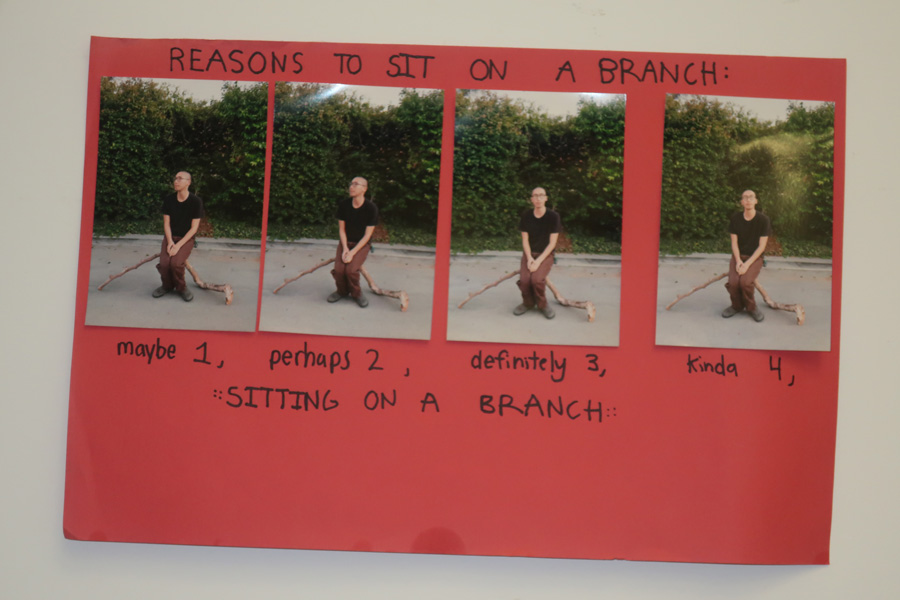 REASONS TO SIT ON A BRANCH:
maybe 1, perhaps 2, definitely 3, kinda 4,
::SITTING ON A BRANCH::